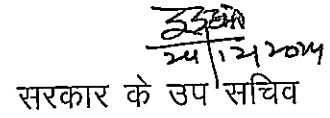 24/12/2024
सरकार के उप सचिव